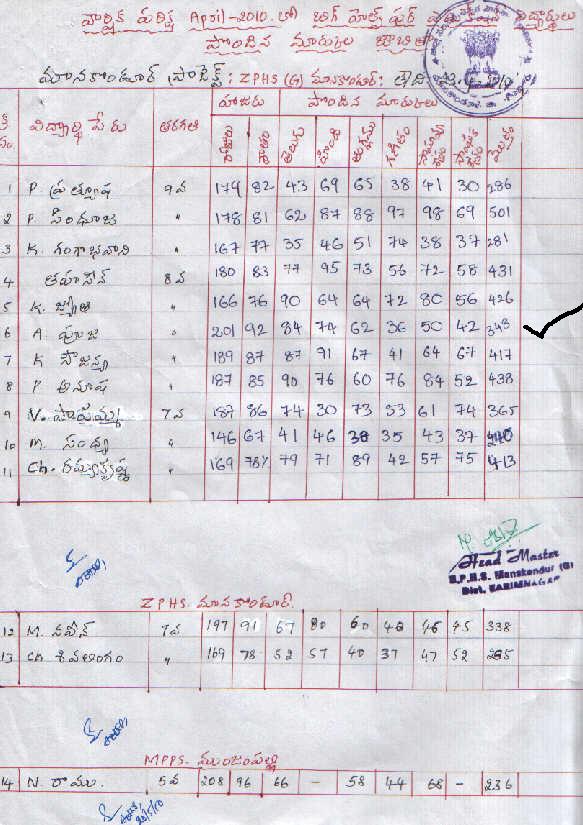 వార్షిక పరీక్ష April-2010.లో బిగ్ హెల్ప్ ఫర్ విద్యార్థులు
పొందిన మార్కుల జాబితా
మానకొండూర్ ZPHS (G) మానకొండూర్:
హాజరు పొందిన మార్కులు
విద్యార్థి పేరు తరగతి హాజరు శాతం తెలుగు హిందీ ఇంగ్లీషు గణితం మొత్తం
1 P. ప్రత్యూష 9వ 179 82 43 69 65 38 41 30 286
2 P. సింధూజ " 178 81 62 87 88 97 98 69 501
3 K. గంగాభవాని " 167 77 35 46 51 74 38 37 281
4 తహసీన్ 8వ 180 83 77 95 73 56 72 58 431
5 K. జ్యోతి " 166 76 90 64 64 72 80 56 426
6 A. పూజ " 201 92 84 74 62 36 50 42 348
7 K సౌజన్య " 189 87 87 91 67 41 64 67 417
8 P అనూష " 187 85 90 76 60 76 84 52 438
9 N. పోషమ్మ 7వ 187 86 74 30 73 53 61 74 365
10 M. సంధ్య " 146 67 41 46 38 35 43 37 240
11 Ch. రమ్యకృష్ణ " 169 78% 79 71 89 42 57 75 413
Head Master
Z.P.H.S. Manakondur (G)
Dist. KARIMNAGAR
ZPHS. మానకొండూర్.
12 M. నవీన్ 7వ 197 91 67 80 60 46 45 338
13 Ch. శివలింగం " 169 78 52 57 40 37 47 52 285
MPPS. ముంజంపల్లి
14 N. రాము. 5వ 208 96 66 - 58 44 68 - 236